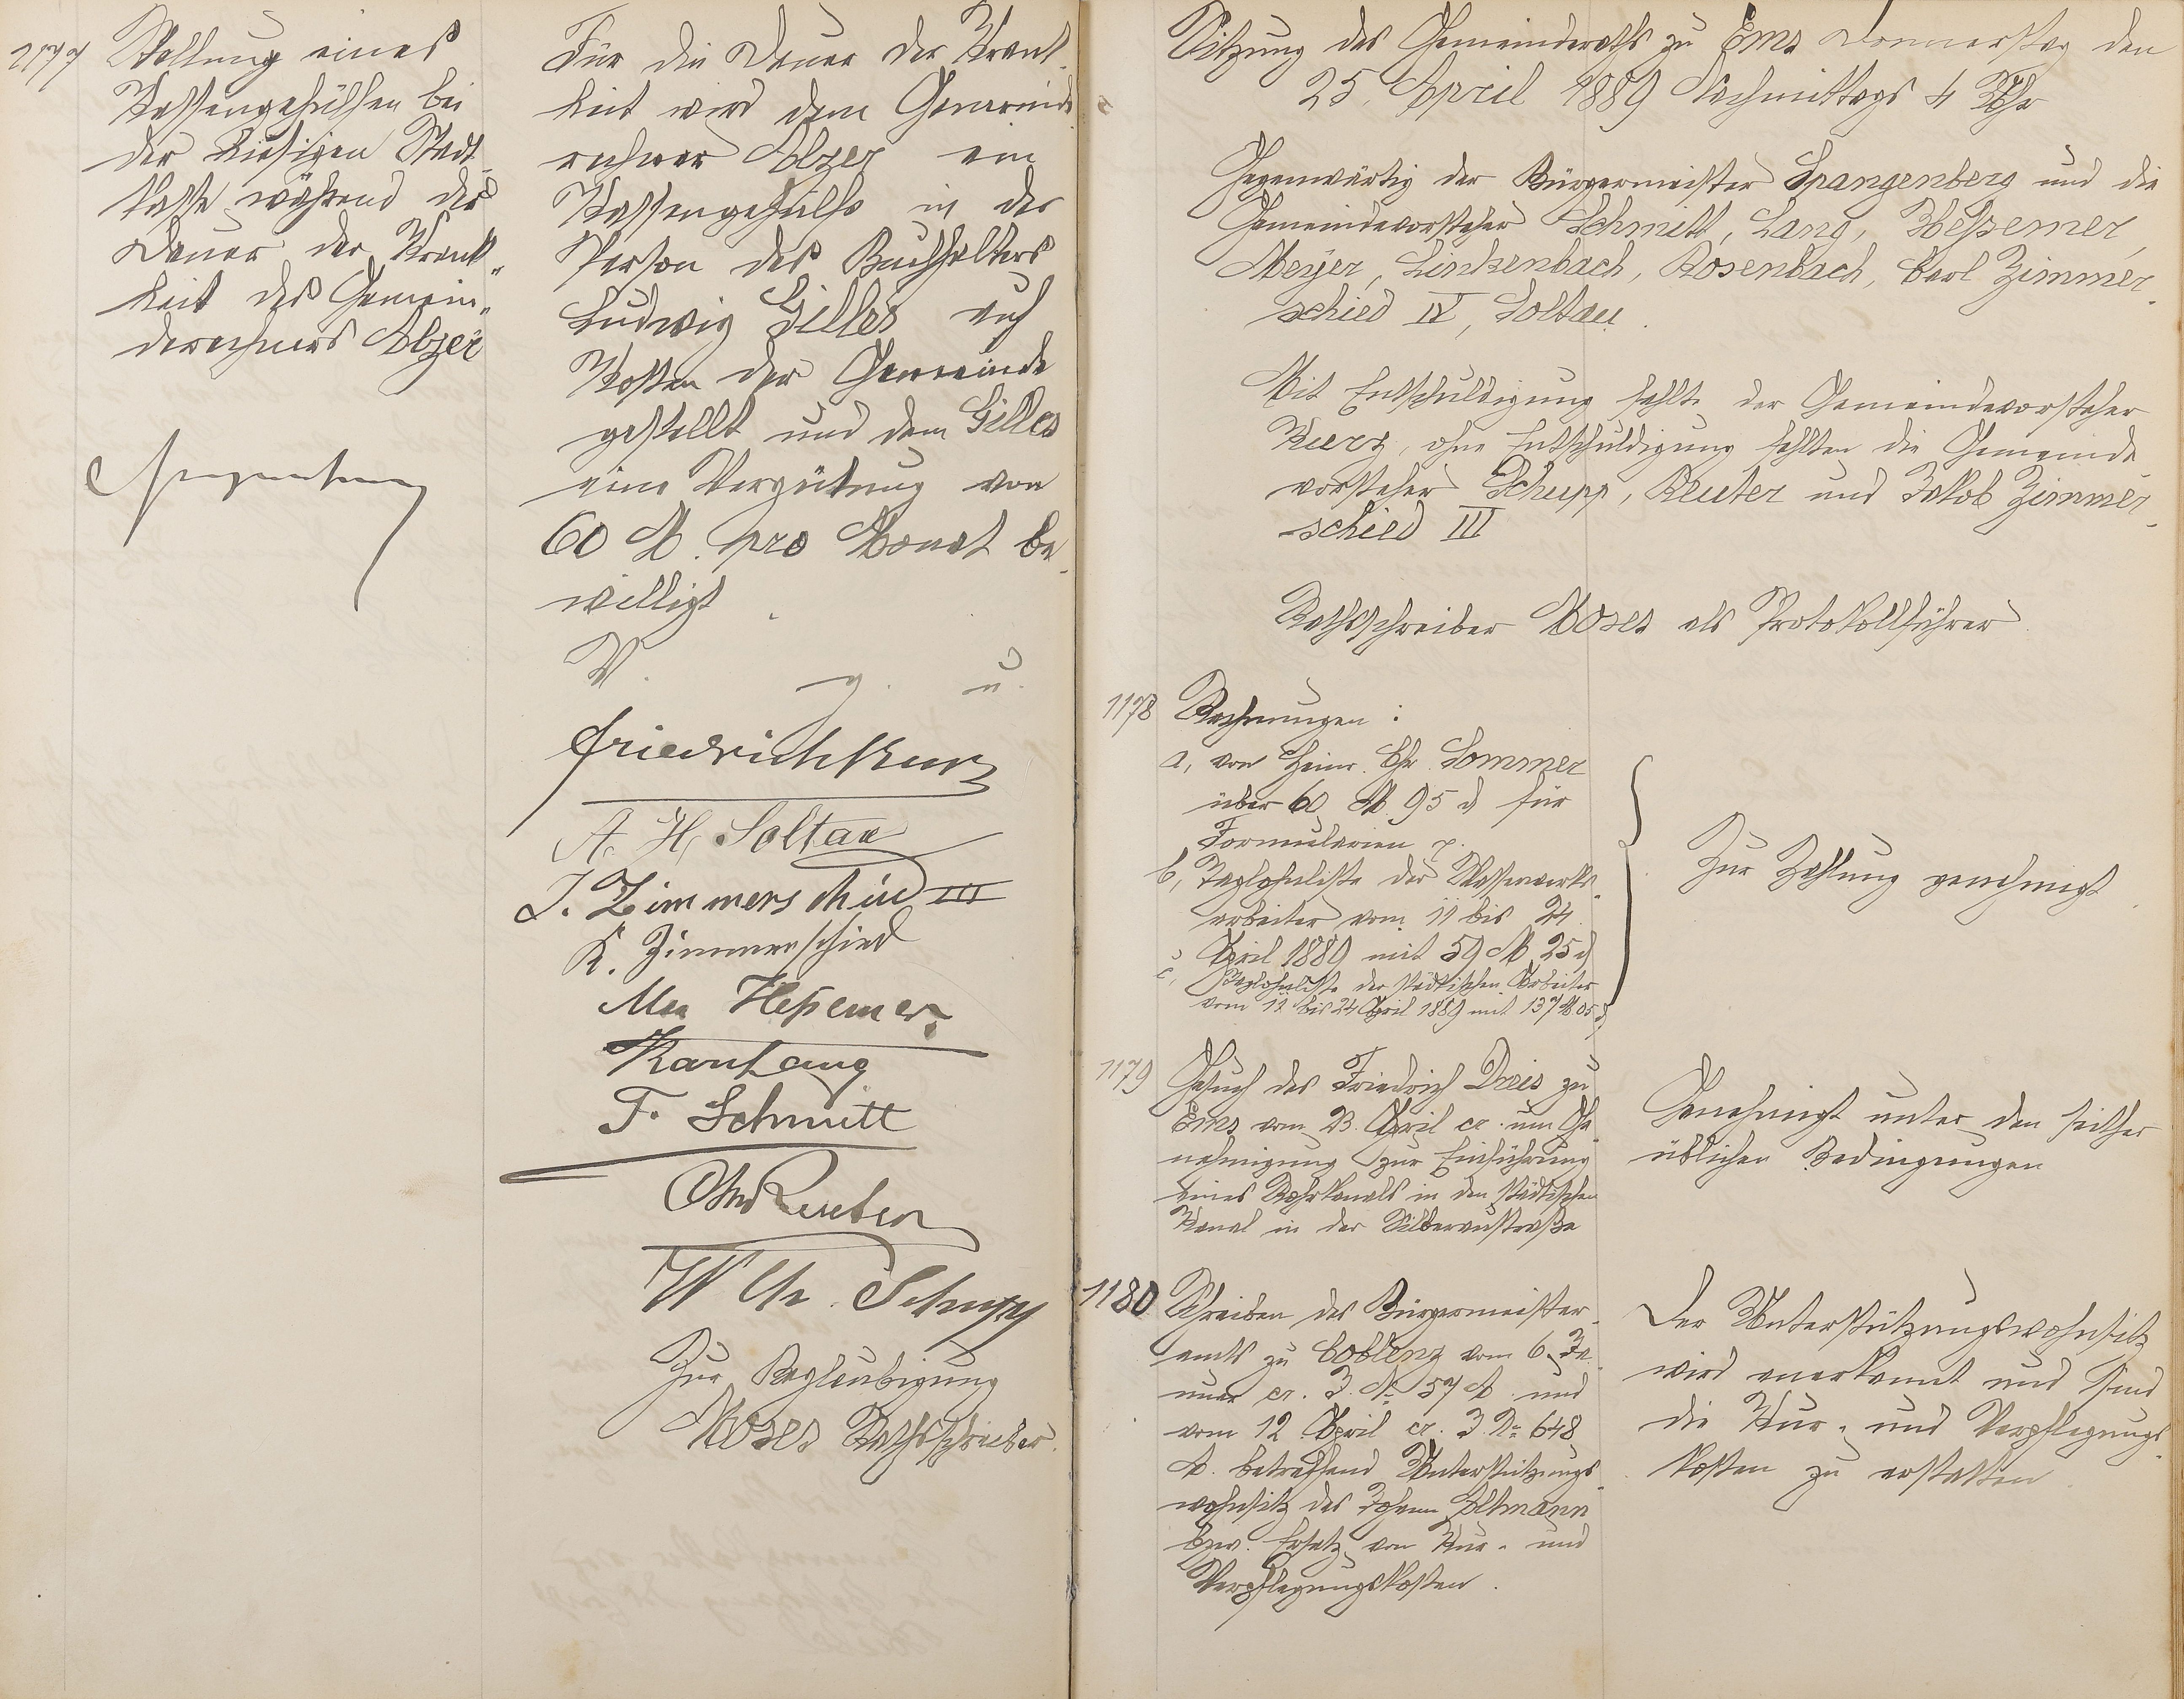 1177
Stellung eines
Kassengehülfen bei
der hiesigen Stadt-
kasse während der
Dauer der Krank-
heit des Gemein-
derechners Alzer
Spangenberg
Für die Dauer der Krank-
heit wird dem Gemeinde
rechner Alzer ein
Kassengehülfe in der
Person des Buchhalters
Ludwig Gilles auf
Kosten der Gemeinde
gestellt und dem Gilles
eine Vergütung von
60 M. pro Monat be-
willigt.
V. g. u.
Friedrich Kurz
A. H. Soltau
J. Zimmerschied III
K. Zimmerschied
Hessemer
Karl Lang
F. Schmitt
Reuter
W Chr. Schupp
Zur Beglaubigung
Moses Rathsschreiber.
Sitzung des Gemeinderaths zu Ems Donnerstag den
25. April 1889 Nachmittags 4 Uhr
Gegenwärtig der Bürgermeister Spangenberg und die
Gemeindevorsteher Schmitt, Lang, Heßemer,
Meyer, Linkenbach, Rosenbach, Carl Zimmer-
schied IV, Soltau.
Mit Entschuldigung fehlte der Gemeindevorsteher
Kurz, ohne Entschuldigung fehlten die Gemeinde-
vorsteher Schupp, Reuter und Jakob Zimmer-
schied III
Rathsschreiber Moses als Protokollführer
1178 Rechnungen:
a, von Heinr. Chr. Sommer
über 60 M. 95 d für
Formularien p.
b, Taglohnliste der Wasserwerks-
arbeiter vom 11 bis 24.
April 1889 mit 59 M 25 d
c, Taglohnliste der städtischen Arbeiter
vom 12 bis 24 April 1889 mit 137 M 05 d
Zur Zahlung genehmigt.
1179 Gesuch des Friedrich Dreis zu
Ems vom 23. April cr. um Ge-
nehmigung zur Einführung
eines Rohrkanals in den städtischen
Kanal in der Silberaustraße
Genehmigt unter den seither
üblichen Bedingungen
1180 Schreiben des Bürgermeister-
amts zu Coblenz vom 6. Ja-
nuar cr. J. № 57 A und
vom 12 April cr. J. № 648
A. betreffend Unterstützungs-
wohnsitz des Johann Altmann
bzw. Ersatz von Kur- und
Verpflegungskosten.
Der Unterstützungswohnsitz
wird anerkannt und sind
die Kur- und Verpflegungs-
kosten zu erstatten.